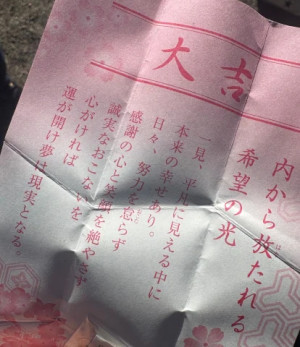 大吉
内から放たれる
希望の光
一見、平凡に見える中に
本来の幸せあり。
日々、努力を怠らず
感謝の心と笑顔を絶やさず
誠実なおこないを
心がければ
運が開け夢は現実となる。